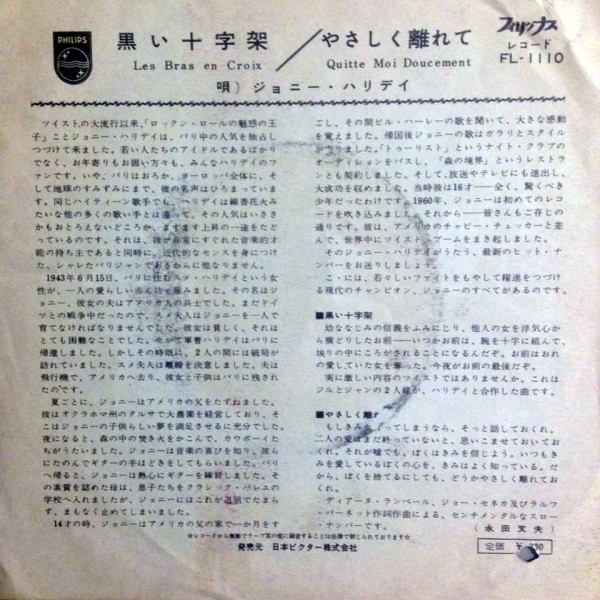 PHILIPS
黒い十字架
Les Bras en Croix
やさしく離れて
Quitte Moi Doucement
唄）ジョニー・ハリデイ
フィリップス
レコード
FL-1110
ツイストの大流行以来、「ロックン・ロールの魅惑の王
子」ことジョニー・ハリデイは、パリ中の人気を独占し
つづけて来ました。若い人たちのアイドルであるばかり
でなく、お年寄りもお固い方々も、みんなハリデイのファ
ンです。いや、パリはおろか、ヨーロッパ全体に、そ
して地球のすみずみにまで、彼の名声はひろまっていま
す。同じハイティーン歌手でも、ハリデイは線香花火み
たいな他の多くの歌い手とは違って、その人気はいささ
かもおとろえないどころか、ますます上昇の一途をたど
っているのです。それは、彼が非常にすぐれた音楽的才
能の持ち主であると同時に、近代的なセンスを身につけ
た、シャレたパリジャンであるからに他なりません。
1943年6月15日、パリに住むスメ・ハリデイという女
性が、一人の愛らしい赤ん坊を産みました。その名はジョ
ニー、彼女の夫はアメリカ人の兵士でした。まだドイ
ツとの戦争中だったので、スメ夫人はジョニーを一人で
育てなければなりませんでした。彼女は貧しく、それは
とても困難なことでした。やがて軍曹ハリデイはパリに
帰還しました。しかしその時既に、2人の間には破局が
訪れていました。スメ夫人は離婚を決意しました。夫は
飛行機で、アメリカへ去り、彼女と子供はパリに残され
たのです。
夏ごとに、ジョニーはアメリカの父をたずねました。
彼はオクラホマ州のタルサで大農園を経営しており、そ
こはジョニーの子供らしい夢を満足させるに充分でした。
夜になると、森の中の焚き火をかこんで、カウボーイた
ちがうたいました。ジョニーは音楽の喜びを知り、彼ら
にたのんでギターの手ほどきをしてもらいました。パリ
へ帰ると、ジョニーは熱心にギターを練習しました。そ
の素質を認めた母は、息子たちをクラシック・バレエの
学校へ入れましたが、ジョニーにはこれが退屈でたまら
ず、まもなく止めてしまいました。
14才の時、ジョニーはアメリカの父の家で一か月をす
ごし、その間ビル・ハーレーの歌を聞いて、大きな感動
を覚えました。帰国後ジョニーの歌はガラリとスタイル
が変りました。「トゥーリスト」というナイト・クラブの
オーディションをパスし、「森の境界」というレストラ
ンとも契約しました。そして、放送やテレビにも進出し、
大成功を収めました。当時彼は16才――全く、驚くべき
少年だったわけです。1960年、ジョニーは初めてのレコ
ードを吹き込みました。それから――皆さんもご存じの
通りです。彼は、アメリカのチャビー・チェッカーと並
んで、世界中にツイスト・ブームをまき起しました。
そのジョニー・ハリデイがうたう、最新のヒット・ナ
ンバーをお送りしましょう。
ここには、若々しいファイトをもやして躍進をつづけ
る現代のチャンピオン、ジョニーのすべてがあるのです。
■黒い十字架
幼ななじみの信義をふみにじり、他人の女を浮気心か
ら横どりしたお前――いつかお前は、腕を十字に組んで、
埃りの中にころがされることになるんだぞ。お前はおれ
の愛していた女を奪った。今夜がお前の最後だぞ。
実に激しい内容のツイストではありませんか。これは
ジルとジャンの2人組が、ハリデイと合作した曲です。
■やさしく離れて
もしきみが行ってしまうなら、そっと話しておくれ。
二人の愛はまだ終っていないと、思いこませておいてお
くれ。それが嘘でも、ぼくはきみを信じよう。いつもき
みを愛しているぼくの心を、きみはよく知っている。だ
から、ぼくを捨てるにしても、どうかやさしく離れてお
くれ。
ディアーヌ・ランペール、ジョー・セネカ及びラルフ
・バーネット作詞作曲による、センチメンタルなスロー
・ナンバーです。
（永田文夫）
☆レコードから無断でテープ其の他に録音することは法律で禁じられております☆
発売元 日本ビクター株式会社
定価 ¥ 330